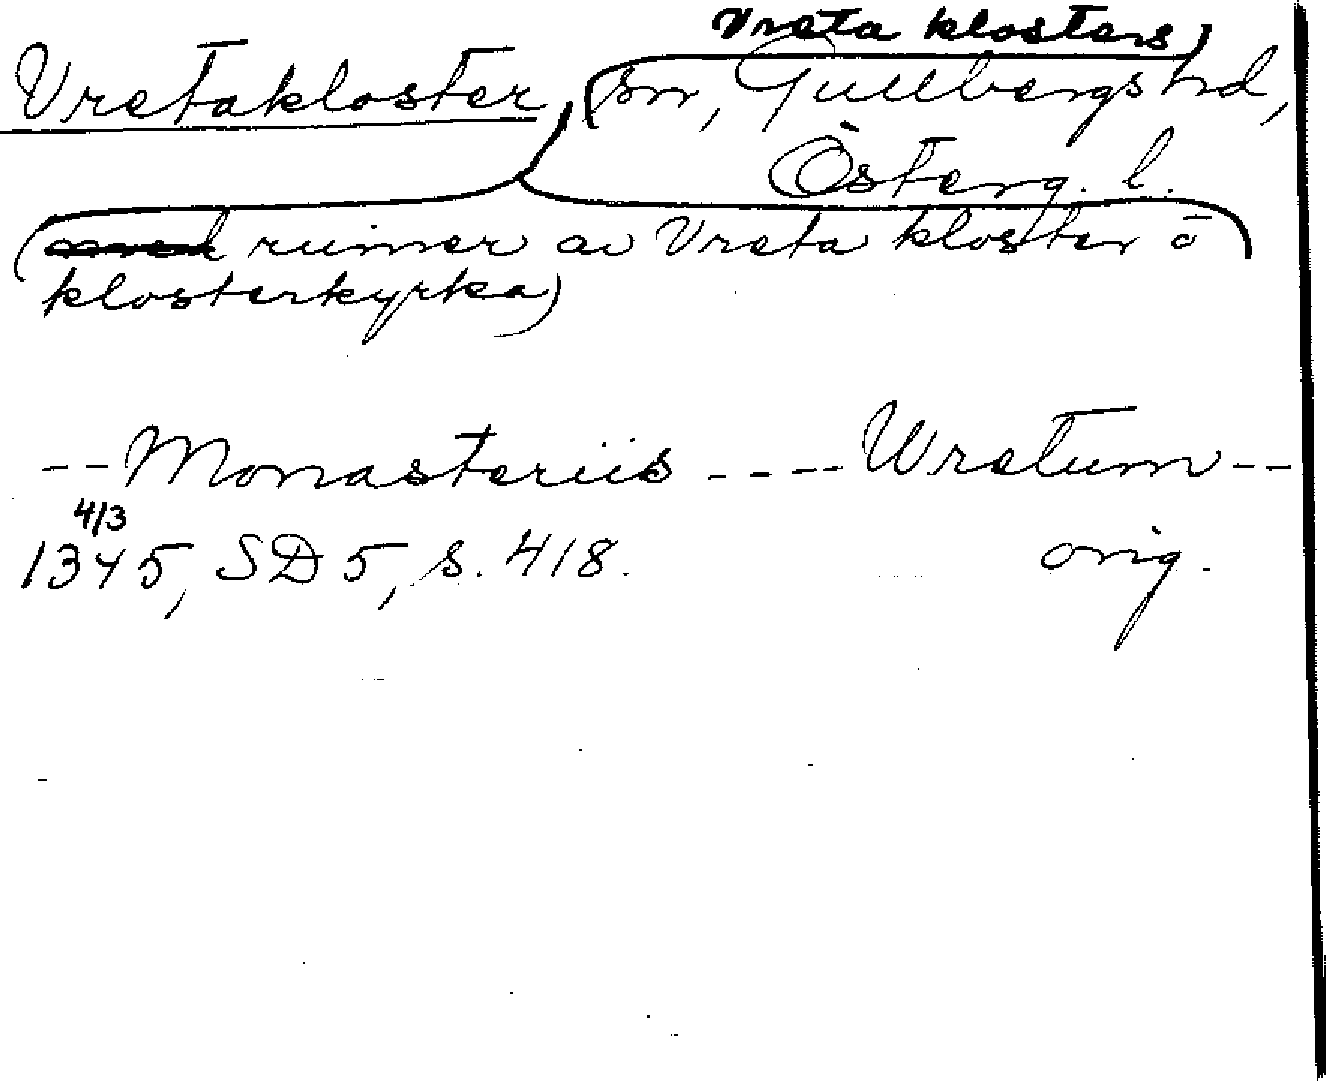 Vreta klosters
Vretakloster, sn, Gullbergs hd,
Österg. l.
(med ruiner av Vreta kloster o
klosterkyrka)
-- Monasteriis ---- Wretum --
4/3
1345, SD 5, s. 418. orig.